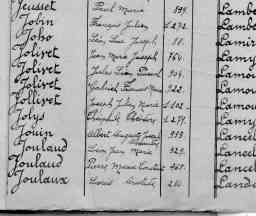 Jeusset Paul Marie 899. Lambe
Jobin François Julien 1.272. Lambe
Joho Léon, Luc Joseph 88. Lamir
Jolivet Jean Marie Joseph 760. Lamo
Jolivet Jules Léon Paul 904. Lamou
Jolivet Gabriel François Marie 922. Lamou
Jollivet Joseph Jules Marie 1.102. Lamo
Jolys Théophile 1.279. Lamy
Jouin Albert Auguste Joseph 953. Lancel
Joulaud Léon Jean Marie 929. Lancel
Joulaud Pierre Marie Constant 469. Lancel
Joulaux Louis 210. Land